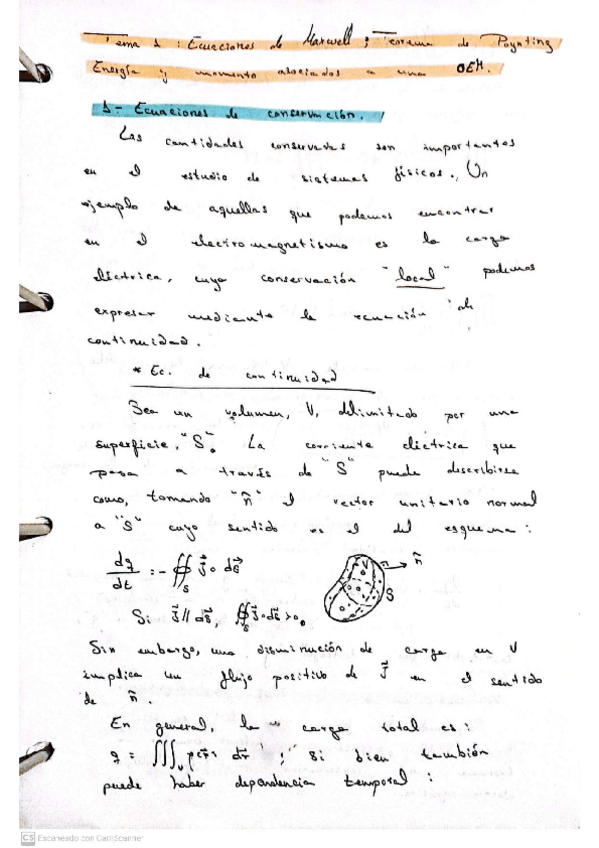 Tema 1 : Ecuaciones de Maxwell ; Teorema de Poynting
Energía y momento asociados a una OEM.
1- Ecuaciones de conservación.
Las cantidades conservadas son importantes
en el estudio de sistemas físicos. Un
ejemplo de aquellas que podemos encontrar
en el electromagnetismo es la carga
eléctrica, cuya conservación "local" podemos
expresar mediante la ecuación de
continuidad.
* Ec. de continuidad
Sea un volumen, V, delimitado por una
superficie, "S". La corriente eléctrica que
pasa a través de "S" puede describirse
como, tomando "n̂" el vector unitario normal
a "S" cuyo sentido es el del esquema :
dq/dt = - ∯_S J⃗ · dS⃗
V n̂ S
Si J⃗ // dS⃗, ∯_S J⃗·dS⃗ > 0
Sin embargo, una disminución de carga en V
implica un flujo positivo de J⃗ en el sentido
de n̂.
En general, la carga total es :
q = ∭_V ρ(r⃗) dr⃗ ; si bien también
puede haber dependencia temporal :
CS Escaneado con CamScanner